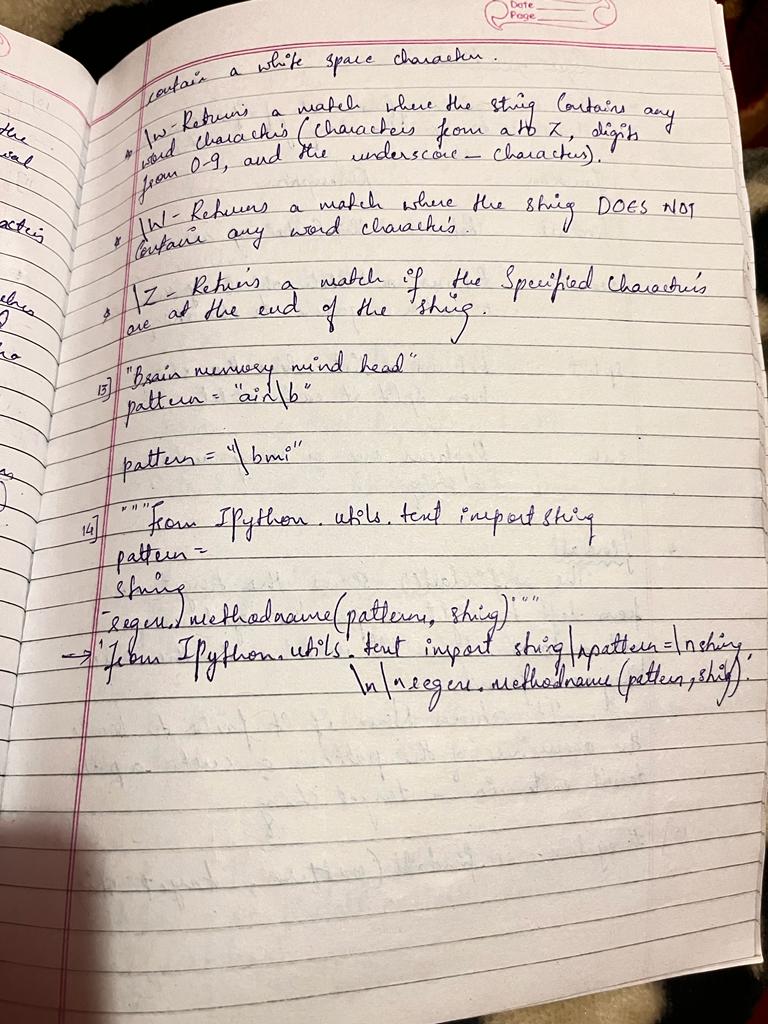 Date
Page
contain a white space character.
* \w - Returns a match where the string Contains any
word characters (characters from a to Z, digits
from 0-9, and the underscore _ character).
* \W - Returns a match where the string DOES NOT
Contain any word characters.
* \Z - Returns a match if the Specified Characters
are at the end of the string.
13] "Brain memory mind head"
pattern = "ain\b"
pattern = "\bmi"
14] """from IPython.utils.text import string
pattern =
string
regex.methodname(pattern, string)"""
→ 'from IPython.utils.text import string\npattern=\nstring
\n\nregex.methodname(pattern, string)'